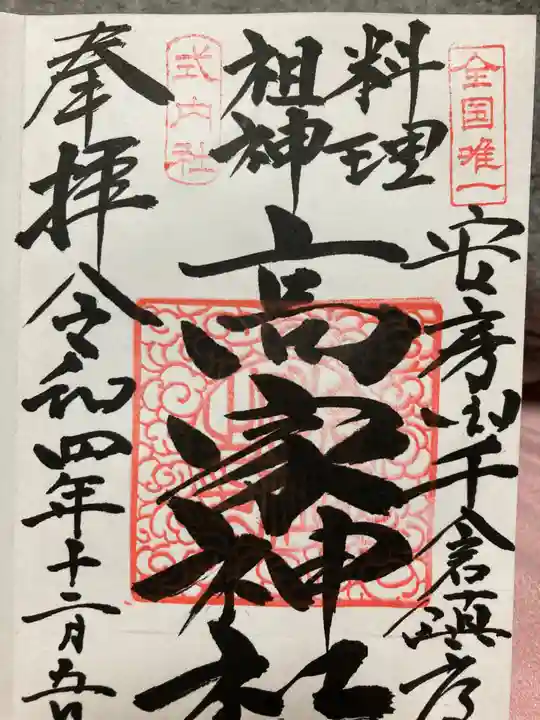 全国唯一
安房国千倉鎮座
料理
祖神
高家神社
式内社
奉拝
令和四年十二月五日